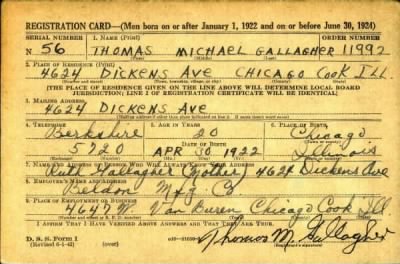 REGISTRATION CARD—(Men born on or after January 1, 1922 and on or before June 30, 1924)
SERIAL NUMBER 1. Name (Print) ORDER NUMBER
N 56 THOMAS MICHAEL GALLAGHER 11992
(First) (Middle) (Last)
2. Place of Residence (Print)
4624 DICKENS AVE CHICAGO COOK ILL.
(Number and street) (Town, township, village, or city) (County) (State)
[THE PLACE OF RESIDENCE GIVEN ON THE LINE ABOVE WILL DETERMINE LOCAL BOARD
JURISDICTION; LINE 2 OF REGISTRATION CERTIFICATE WILL BE IDENTICAL]
3. Mailing Address
4624 DICKENS AVE
[Mailing address if other than place indicated on line 2. If same insert word same]
4. Telephone 5. Age in Years 6. Place of Birth
Berkshire 20 Chicago
Date of Birth
5720 APR 30 1922 Illinois
7. Name and Address of Person Who Will Always Know Your Address
Ruth Gallagher (Mother) 4624 Dickens Ave
8. Employer's Name and Address
Beldon Mfg Co
9. Place of Employment or Business
4647 W. Van Buren Chicago Cook Ill.
(Number and street or R. F. D. number) (Town) (County) (State)
I Affirm That I Have Verified Above Answers and That They Are True.
D. S. S. Form 1
(Revised 6-1-42) Thomas M. Gallagher